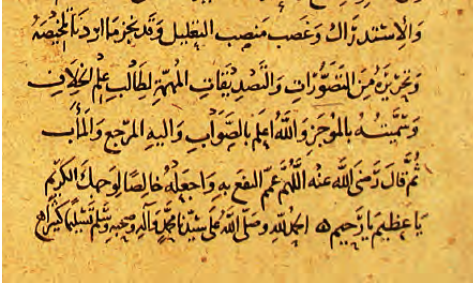 والاستدراك وغصب منصب التعليل وقد نجز ما اردنا تلخيصه
وتحريره من التصورات والتصديقات المهمة لطالب علم الخلاف
وسميته بالموجز والله اعلم بالصواب واليه المرجع والمآب
ثم قال رضي الله عنه اللهم عمم النفع به واجعله خالصا لوجهك الكريم
يا عظيم يا رحيم ه الحمد لله وصلى الله على سيدنا محمد وآله وصحبه وسلم تسليما كثيرا